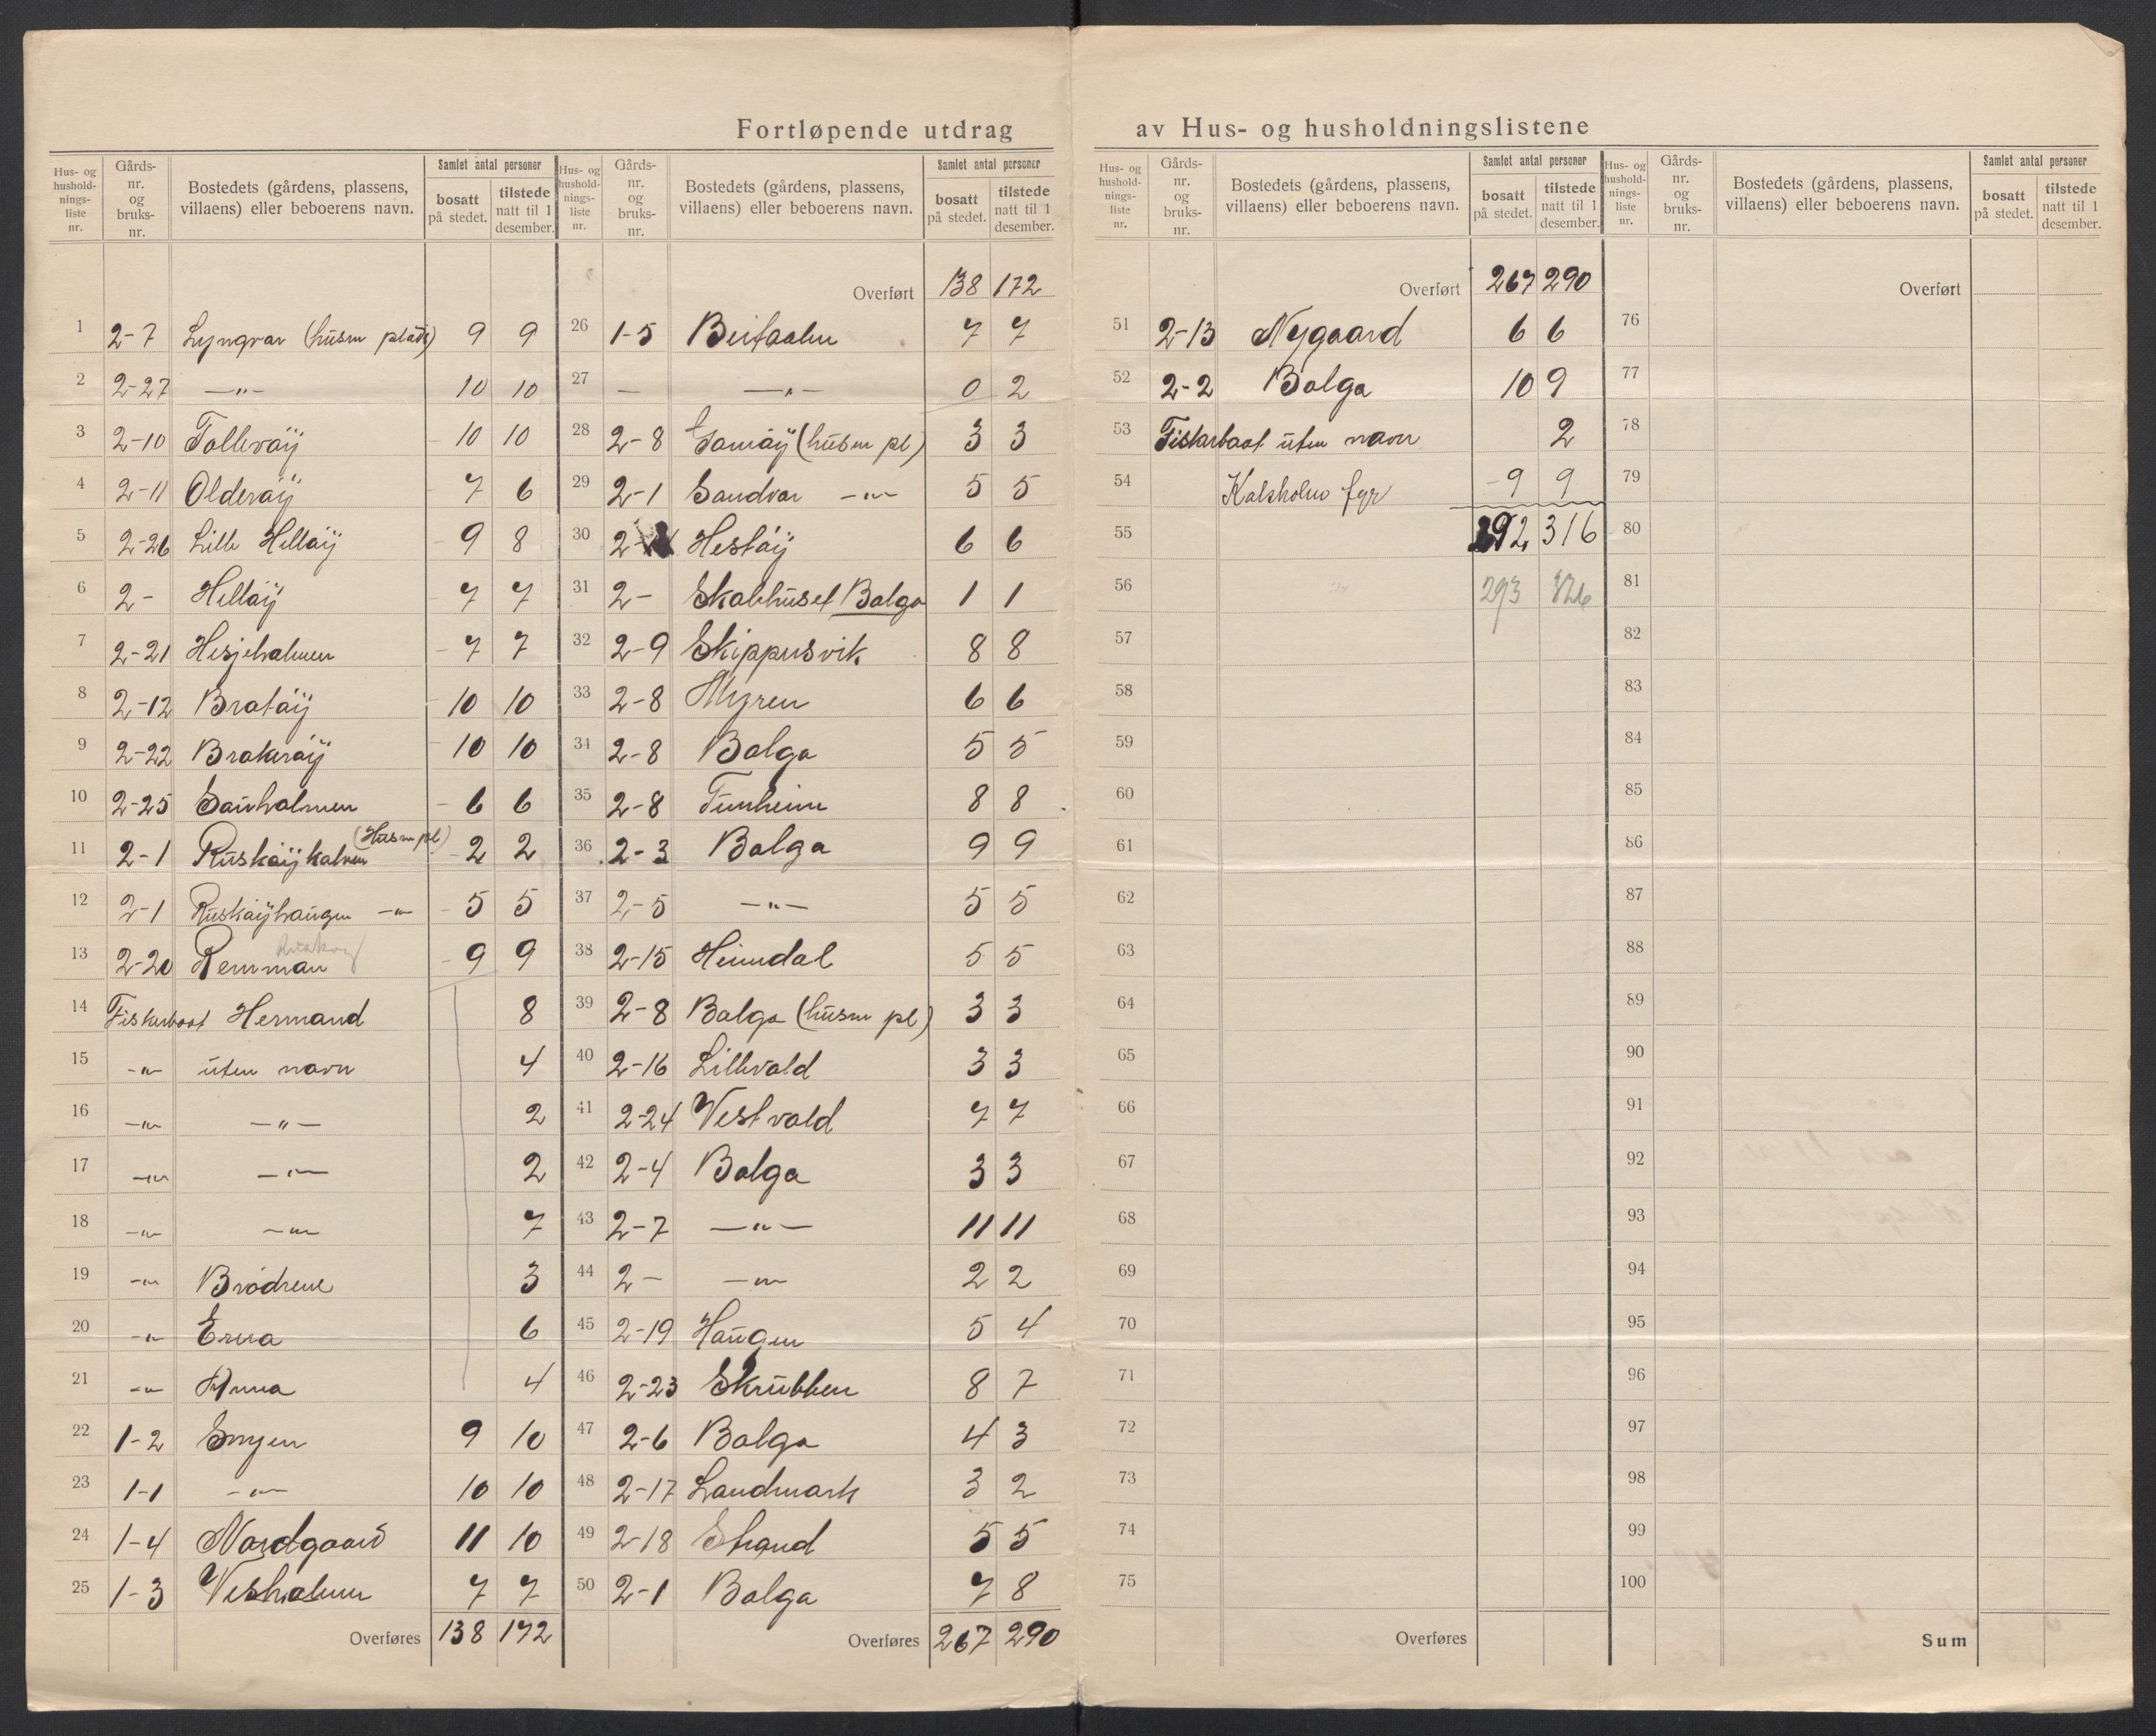 Fortløpende utdrag av Hus- og husholdningslistene
Hus- og husholdningsliste nr. Gårdsnr. og bruksnr. Bostedets (gårdens, plassens, villaens) eller beboerens navn. Samlet antal personer bosatt på stedet. tilstede natt til 1 desember.
1 2-7 Lyngvær (husm plads) 9 9
2 2-27 —"— 10 10
3 2-10 Tollevöij 10 10
4 2-11 Olderöij 7 6
5 2-26 Lille Hellöij 9 8
6 2- Hellöij 7 7
7 2-21 Hesjeholmen 7 7
8 2-12 Bratöij 10 10
9 2-22 Brakeröij 10 10
10 2-25 Sauholmen 6 6
11 2-1 Rusköijkalven (Husm pl) 2 2
12 2-1 Rusköijhaugen —"— 5 5
13 2-20 Remman 9 9
14 Fiskerbaat Hermand 8
15 —"— uten navn 4
16 —"— —"— 2
17 —"— —"— 2
18 —"— —"— 7
19 —"— Brödrene 3
20 —"— Erna 6
21 —"— Anna 4
22 1-2 Engen 9 10
23 1-1 —"— 10 10
24 1-4 Nordgaard 11 10
25 1-3 Vesholmen 7 7
Overføres 138 172
Hus- og husholdningsliste nr. Gårdsnr. og bruksnr. Bostedets (gårdens, plassens, villaens) eller beboerens navn. Samlet antal personer bosatt på stedet. tilstede natt til 1 desember.
Overført 138 172
26 1-5 7 7
27 — —"— 0 2
28 2-8 (husm pl) 3 3
29 2-1 Sandvær —"— 5 5
30 2- Hestöij 6 6
31 2- Skolehuset Bolga 1 1
32 2-9 Skippersvik 8 8
33 2-8 Myren 6 6
34 2-8 Bolga 5 5
35 2-8 Tunheim 8 8
36 2-3 Bolga 9 9
37 2-5 —"— 5 5
38 2-15 Heimdal 5 5
39 2-8 Bolga (husm pl) 3 3
40 2-16 Lillevold 3 3
41 2-24 Vestvold 7 7
42 2-4 Bolga 3 3
43 2-7 —"— 11 11
44 2- —"— 2 2
45 2-19 Haugen 5 4
46 2-23 Skrubben 8 7
47 2-6 Bolga 4 3
48 2-17 Landmark 3 2
49 2-18 Strand 5 5
50 2-1 Bolga 7 8
Overføres 267 290
Hus- og husholdningsliste nr. Gårdsnr. og bruksnr. Bostedets (gårdens, plassens, villaens) eller beboerens navn. Samlet antal personer bosatt på stedet. tilstede natt til 1 desember.
Overført 267 290
51 2-13 Nygaard 6 6
52 2-2 Bolga 10 9
53 Fiskerbaat uten navn 2
54 Kalsholm fyr 9 9
55 292 316
56 293 326
57
58
59
60
61
62
63
64
65
66
67
68
69
70
71
72
73
74
75
Overføres
Hus- og husholdningsliste nr. Gårdsnr. og bruksnr. Bostedets (gårdens, plassens, villaens) eller beboerens navn. Samlet antal personer bosatt på stedet. tilstede natt til 1 desember.
Overført
76
77
78
79
80
81
82
83
84
85
86
87
88
89
90
91
92
93
94
95
96
97
98
99
100
Sum